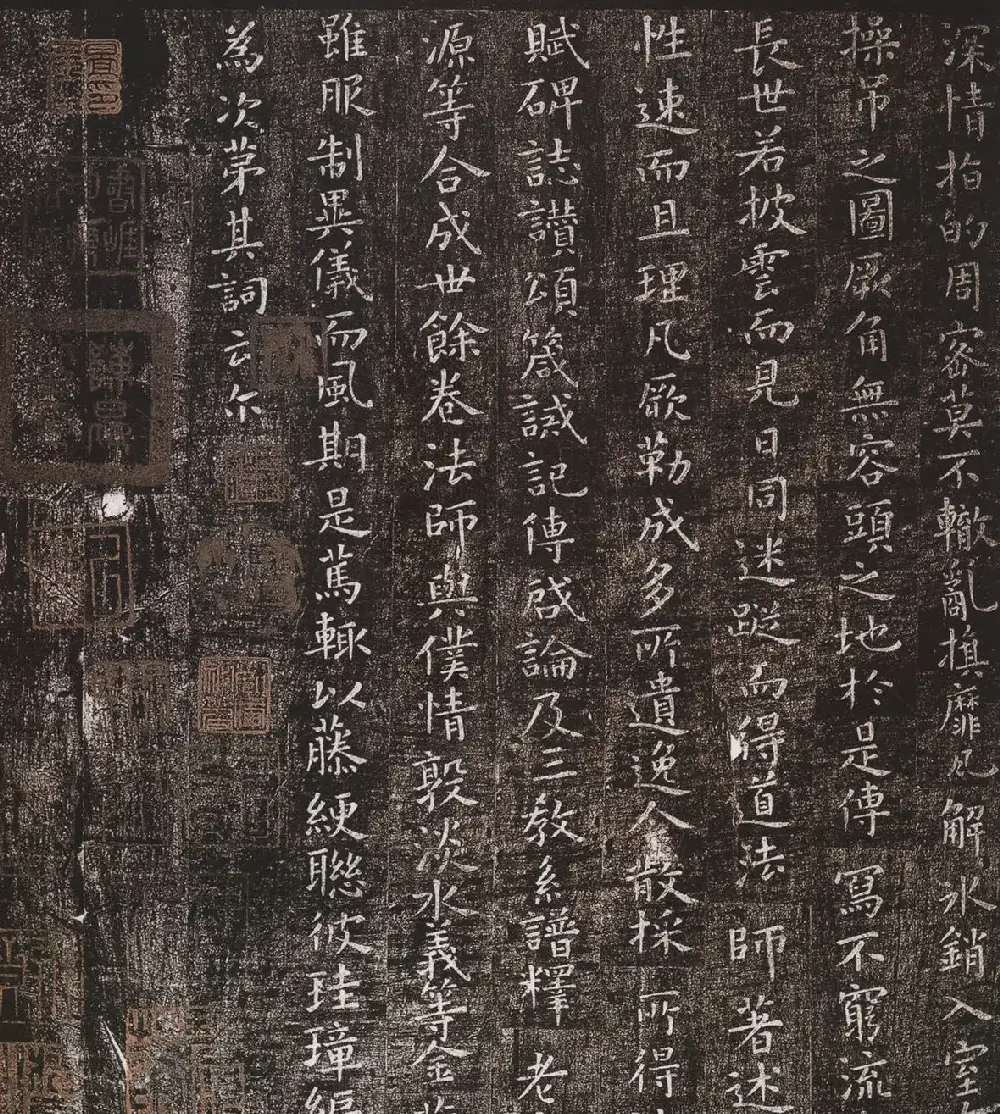 深情指的周密莫不轍亂旗靡凡解冰銷入室
操吊之圖厥角無容頭之地於是傳寫不窮流
長世若披雲而見日同迷蹤而得道法師著述
性速而且理凡厥勒成多所遺逸今散採所得
賦碑誌讃頌箴誡記傳啟論及三教系譜釋老
源等合成世餘卷法師與僕情敦淡水義等金
雖服制異儀而風期是篤輒以藤綆聯彼珪璋編
為次第其詞云尒